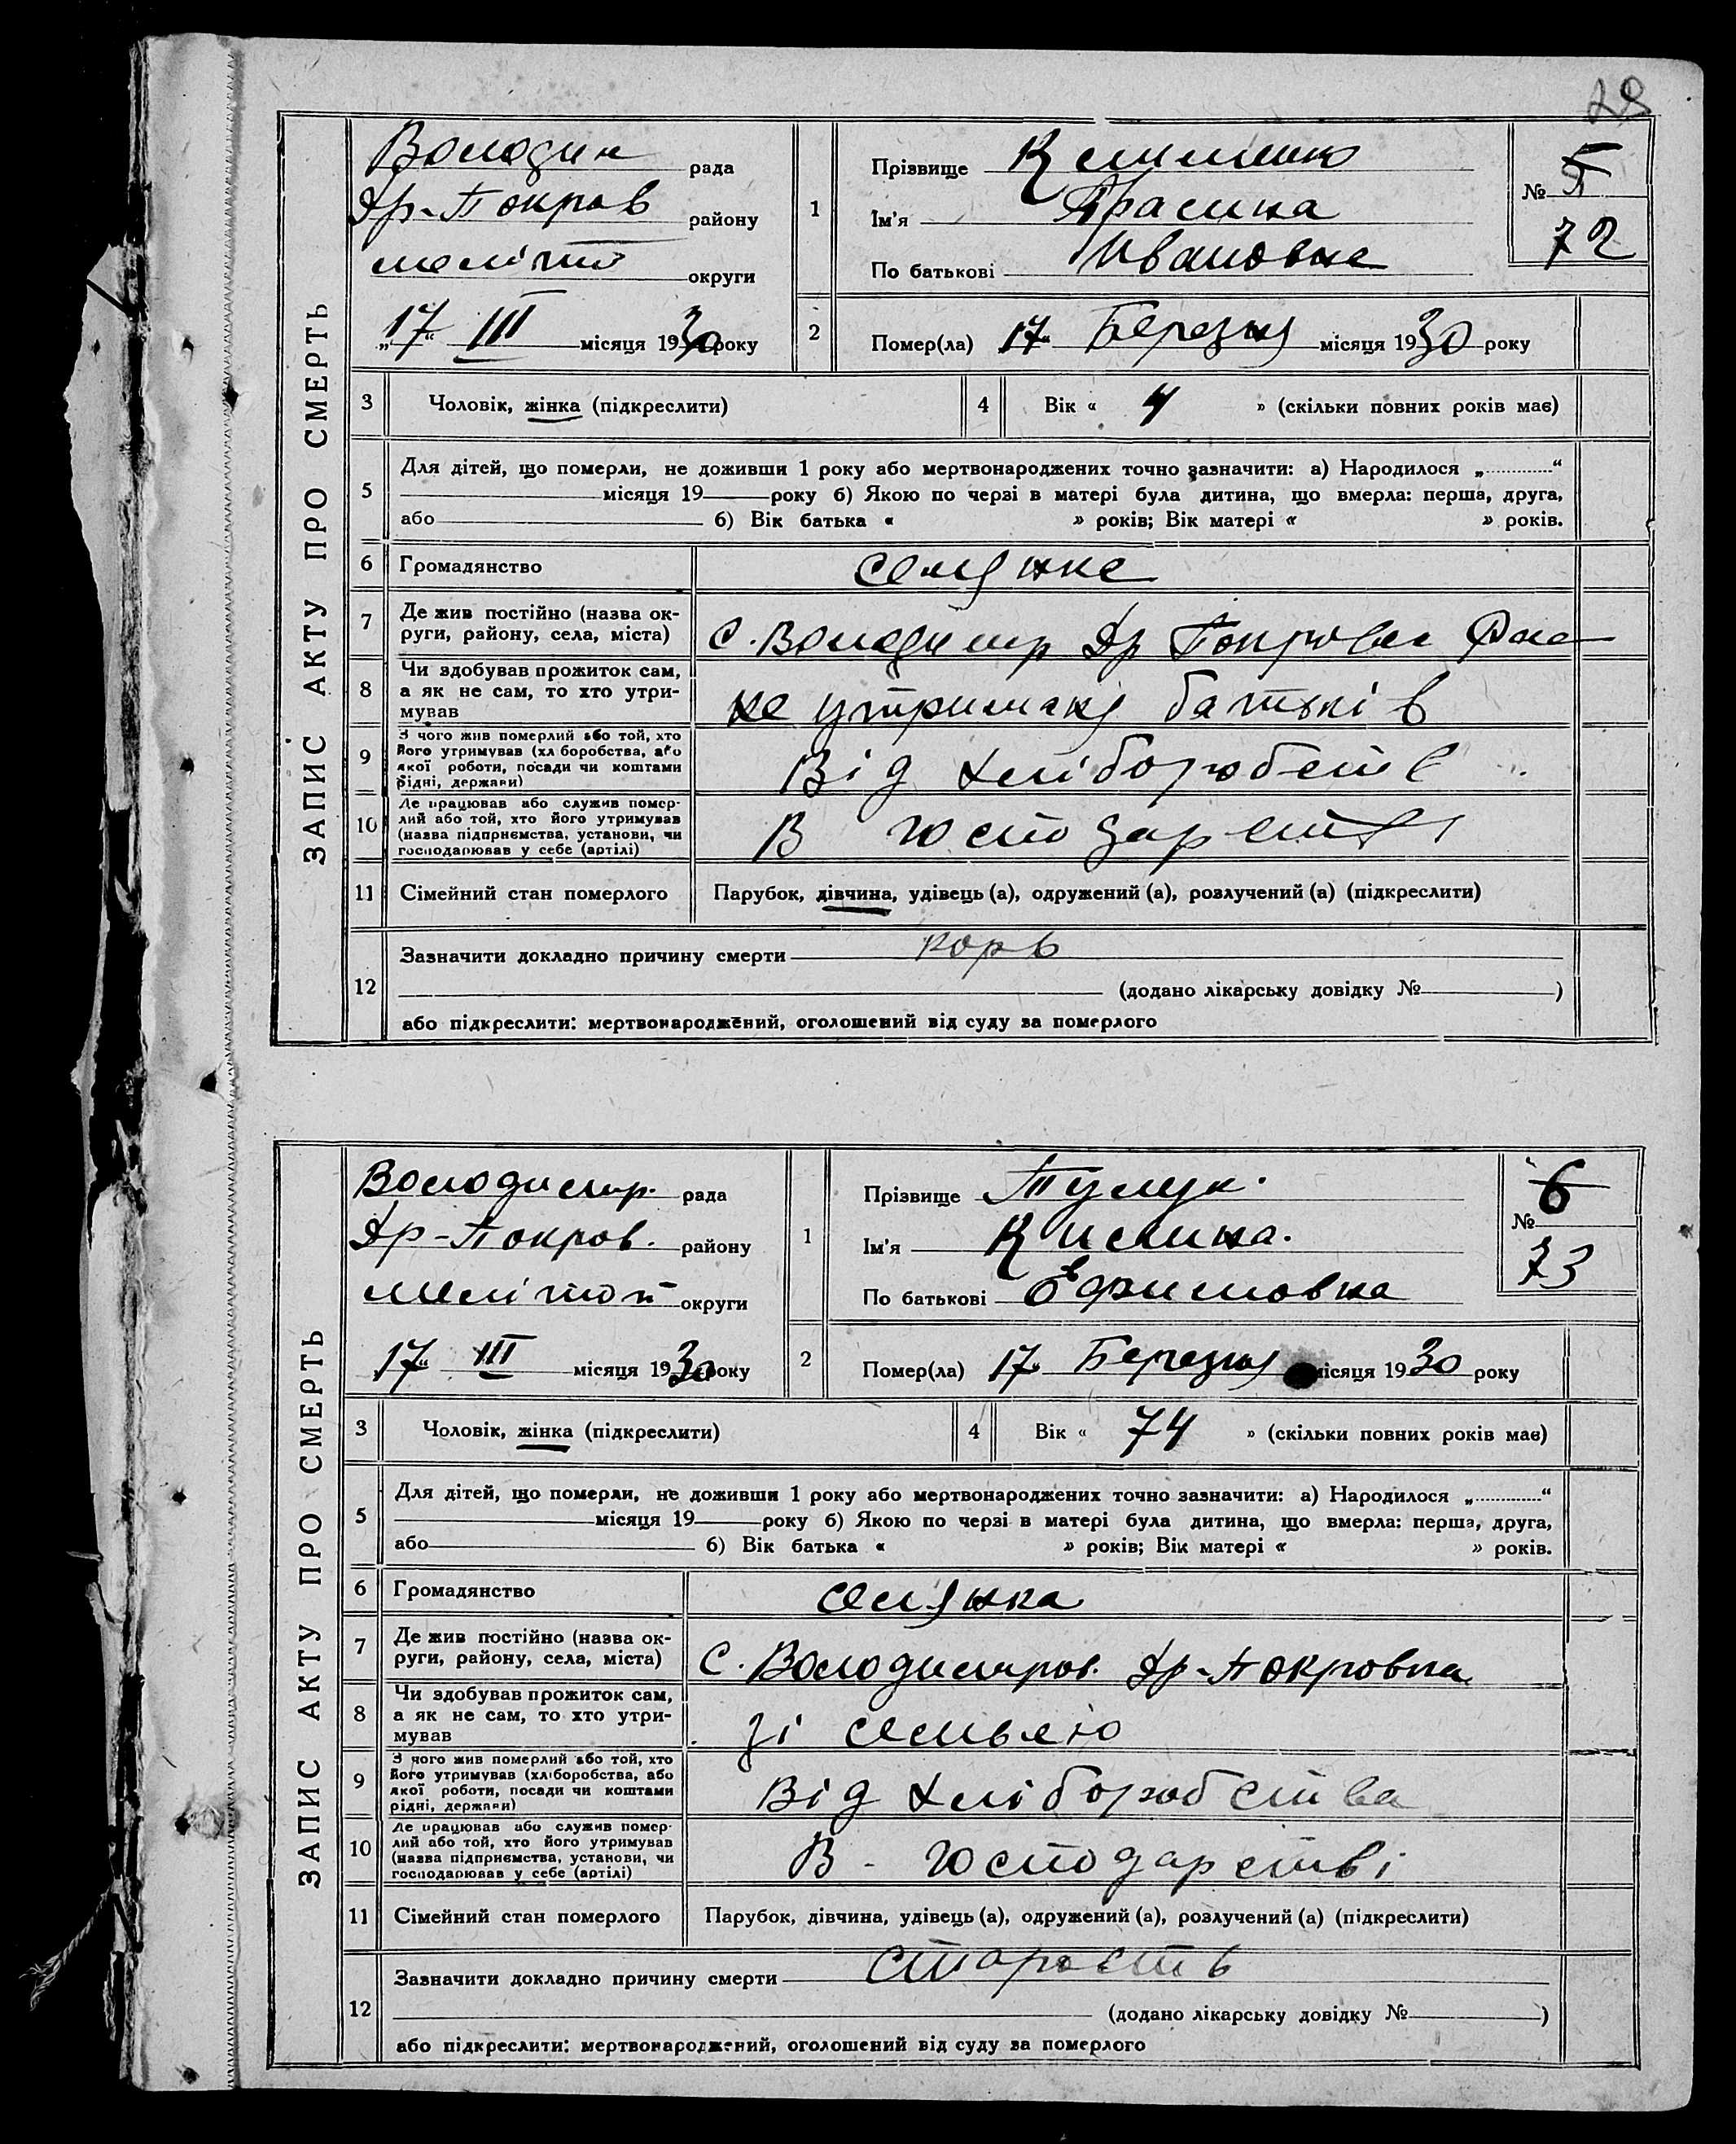 28
ЗАПИС АКТУ ПРО СМЕРТЬ
Володим рада
Др-Покров району
меліто округи
„17“ III місяця 1930 року
1
Прізвище Клименко
Ім'я Прасина
По батькові Ивановна
№ 5
72
2 Помер(ла) 17 Березня місяця 1930 року
3 Чоловік, жінка (підкреслити)
4 Вік « 4 » (скільки повних років має)
5 Для дітей, що померли, не доживши 1 року або мертвонароджених точно зазначити: а) Народилося „ “
місяця 19 року б) Якою по черзі в матері була дитина, що вмерла: перша, друга,
або б) Вік батька « » років; Вік матері « » років.
6 Громадянство селянка
7 Де жив постійно (назва ок-
руги, району, села, міста) С. Володимир Др Покровка
8 Чи здобував прожиток сам,
а як не сам, то хто утри-
мував на утриманя батьків
9 З чого жив померлий або той, хто
його утримував (хліборобства, або
якої роботи, посади чи коштами
рідні, держави) Від хліборобств
10 Де працював або служив помер-
лий або той, хто його утримував
(назва підприємства, установи, чи
господарював у себе (артілі) В господарстві
11 Сімейний стан померлого Парубок, дівчина, удівець (а), одружений (а), розлучений (а) (підкреслити)
12 Зазначити докладно причину смерти корь
(додано лікарську довідку № )
або підкреслити: мертвонароджений, оголошений від суду за померлого
ЗАПИС АКТУ ПРО СМЕРТЬ
Володимир. рада
Др-Покров. району
мелітоп округи
17“ III місяця 1930 року
1
Прізвище Тулуп.
Ім'я Килина.
По батькові Ефимовна
№ 6
73
2 Помер(ла) 17 Березня місяця 1930 року
3 Чоловік, жінка (підкреслити)
4 Вік « 74 » (скільки повних років має)
5 Для дітей, що померли, не доживши 1 року або мертвонароджених точно зазначити: а) Народилося „ “
місяця 19 року б) Якою по черзі в матері була дитина, що вмерла: перша, друга,
або б) Вік батька « » років; Вік матері « » років.
6 Громадянство селянка
7 Де жив постійно (назва ок-
руги, району, села, міста) С. Володимиров. Др-Покровка
8 Чи здобував прожиток сам,
а як не сам, то хто утри-
мував зі семьею
9 З чого жив померлий або той, хто
його утримував (хліборобства, або
якої роботи, посади чи коштами
рідні, держави) Від хліборобства
10 Де працював або служив помер-
лий або той, хто його утримував
(назва підприємства, установи, чи
господарював у себе (артілі) В - господарстві
11 Сімейний стан померлого Парубок, дівчина, удівець (а), одружений (а), розлучений (а) (підкреслити)
12 Зазначити докладно причину смерти старость
(додано лікарську довідку № )
або підкреслити: мертвонароджений, оголошений від суду за померлого